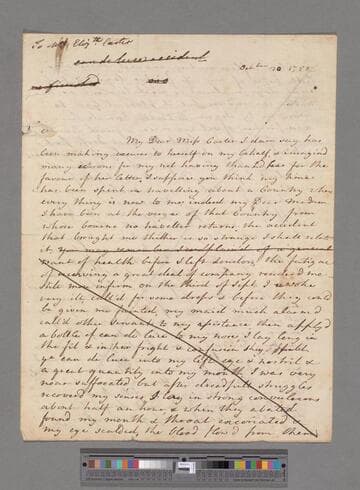 To Mrs Elizth Carter
eau de luce accident
Octbr 10 1782
My Dear Miss Carter I dare say has
been making excuses to herself on my behalf, & imagined
many reasons for my not having thank'd her for the
favour of her letter, I suppose you think my time
has been spent in travelling about a Country where
every thing is new to me, indeed my Dear Madam
I have been at the verge of that Country from
whose bourne no traveller returns, the accident
that brought me thither is so strange I shall relate
it you may
want of health before I left London, the fatigue
of receiving a great deal of company render'd me
still more infirm on the third of Sept I was
very ill, call'd for some drops & before they could
be given me fainted, my maid much alarm'd
call'd other Servants to my assistance then apply'd
a bottle of eau de luce to my nose, I lay long in
the fit & in her fright & confusion they spilt
ye eau de luce into my left eye & nostril &
a great quantity into my mouth I was very
near suffocated but after dreadfull struggles
recover'd my senses, I lay in strong convulsions
about half an hour, & when they abated
found my mouth & throat excoriated
my eye scalded, the blood flow'd from them